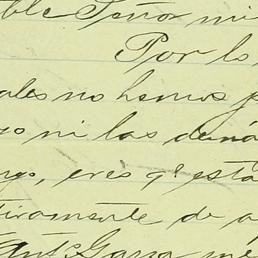 ble Señor mi
Por lo
ales no hemos p
o ni las demá
go, eres qe esta
tiramente de a
Garza me